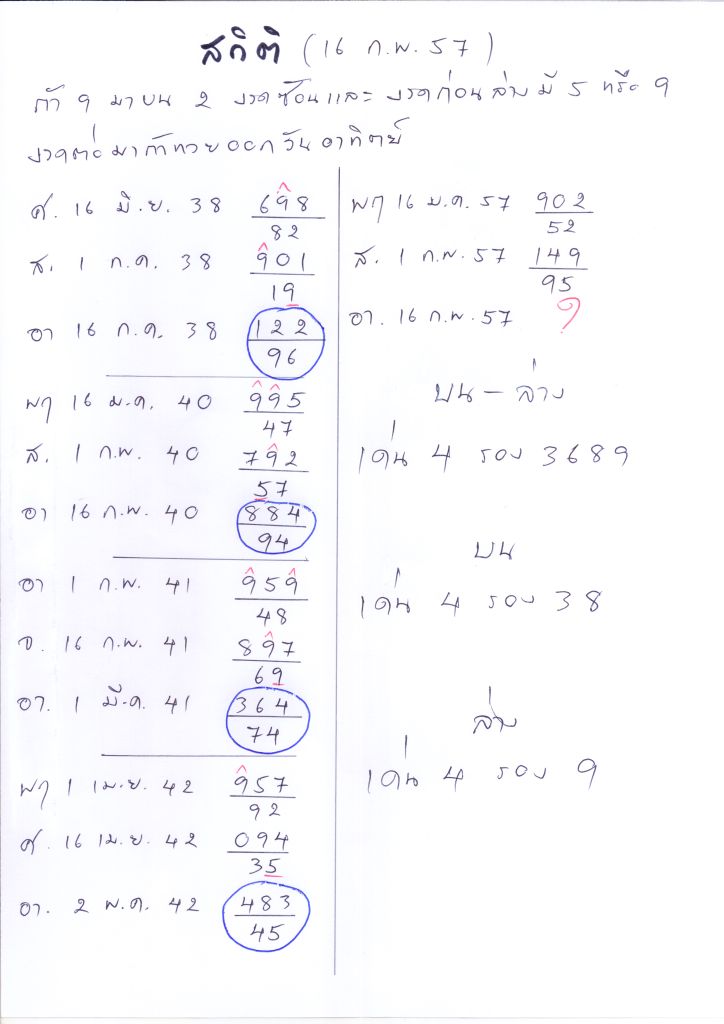 สวิติ (16 ก.พ. 57)
ถ้า 9 มาบน 2 งวดซ้อนและ งวดก่อนล่างมี 5 หรือ 9
งวดต่อมาถ้าหวยออกวันอาทิตย์
ศ. 16 มิ.ย. 38 698
82
ส. 1 ก.ค. 38 901
19
อา 16 ก.ค. 38 122
96
พฤ 16 ม.ค. 40 995
47
ส. 1 ก.พ. 40 792
57
อา 16 ก.พ. 40 884
94
อา 1 ก.พ. 41 959
48
จ. 16 ก.พ. 41 897
69
อา. 1 มี.ค. 41 364
74
พฤ 1 เม.ย. 42 957
92
ศ. 16 เม.ย. 42 094
35
อา. 2 พ.ค. 42 483
45
พฤ 16 ม.ค. 57 902
52
ส. 1 ก.พ. 57 149
95
อา. 16 ก.พ. 57 ?
บน - ล่าง
เด่น 4 รอง 3689
บน
เด่น 4 รอง 38
ล่าง
เด่น 4 รอง 9